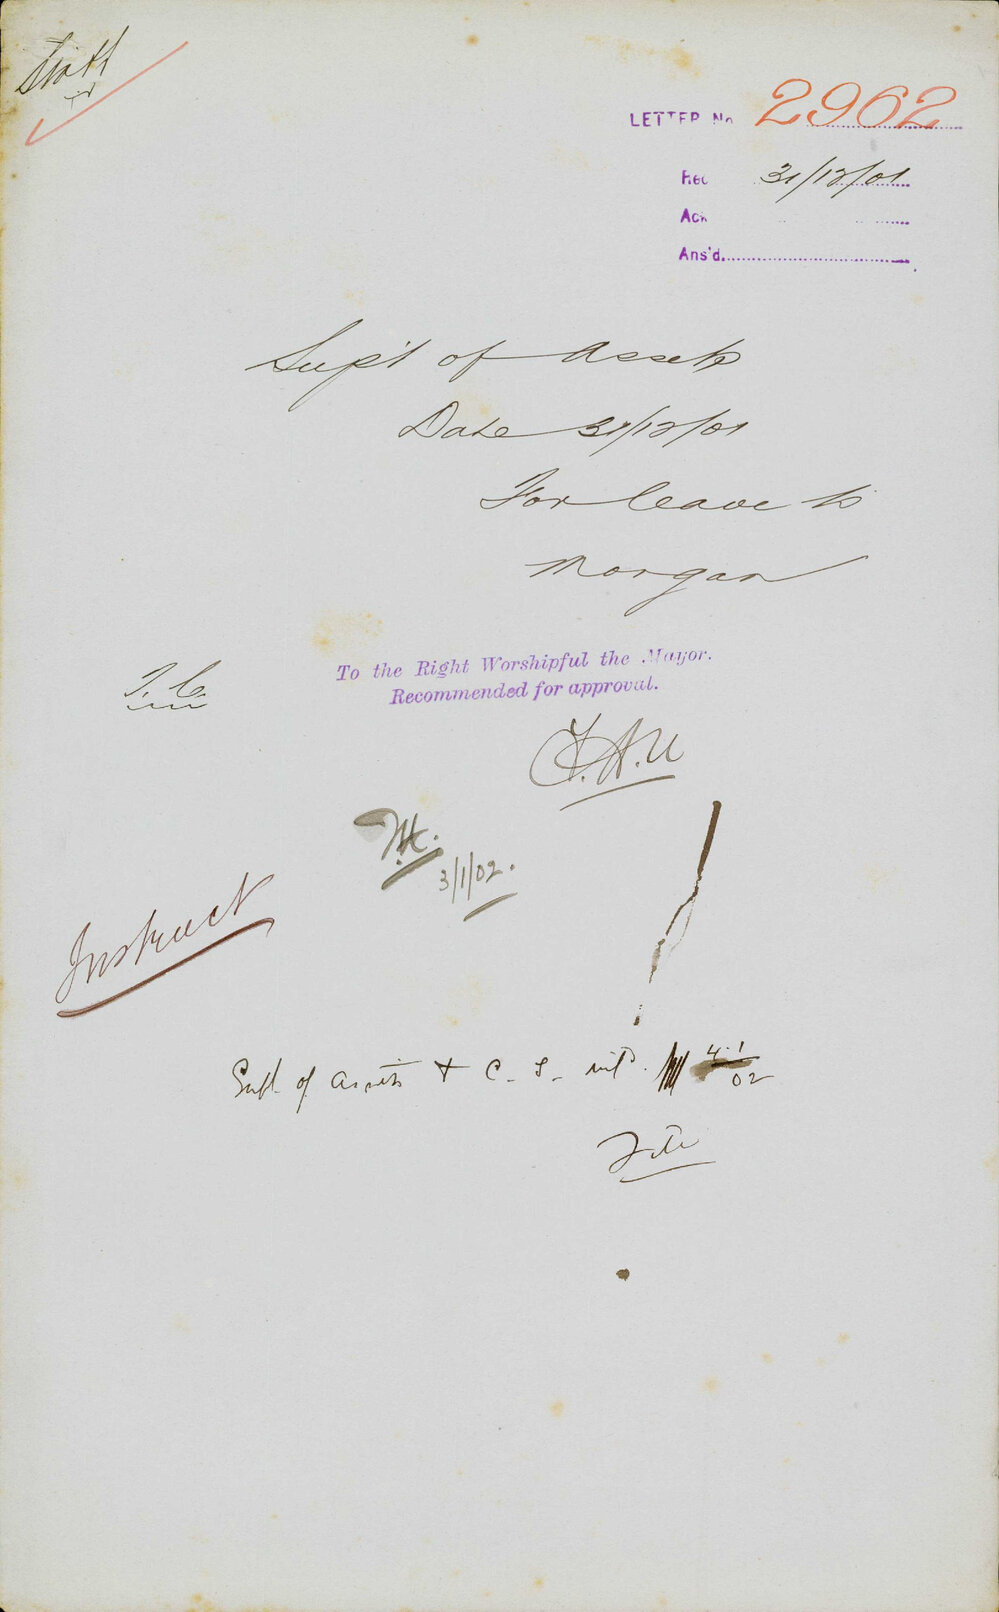 Staff
LETTER No 2962
Rec 31/12/01
Ack
Ans'd
Sup't of Assets
Date 31/12/01
For leave to
Morgan
T. C.
To the Right Worshipful the Mayor.
Recommended for approval.
3/1/02.
Instruct
Supt. of Assets + C. S. 4.1
02
File